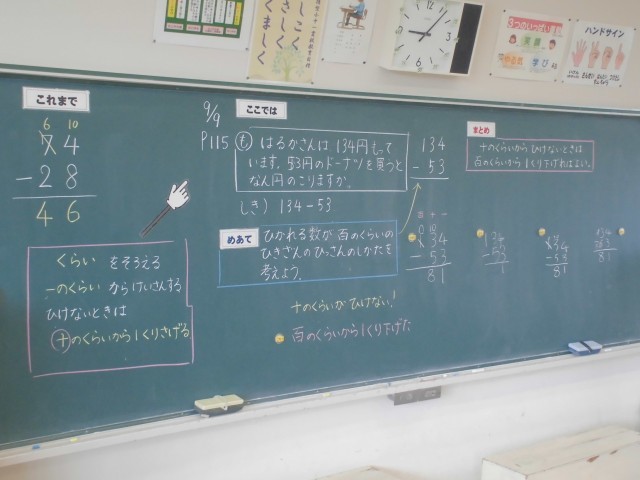 これまで
6 10
74
-28
46
くらい をそろえる
一のくらい からけいさんする
ひけないときは
十のくらいから1くりさげる
9/9
P115
ここでは
も はるかさんは 134円もって
います。53円のドーナツを買うと
なん円のこりますか。
しき) 134-53
めあて
ひかれる数が百のくらいの
ひきざんのひっさんのしかたを
考えよう。
十のくらいがひけない!
百のくらいから1くり下げた
134
-53
百 十 一
0 10
134
-53
81
134
-53
81
81
まとめ
十のくらいからひけないときは
百のくらいから1くり下げればよい。
3つのいっぱい
笑顔
学び
ハンドサイン